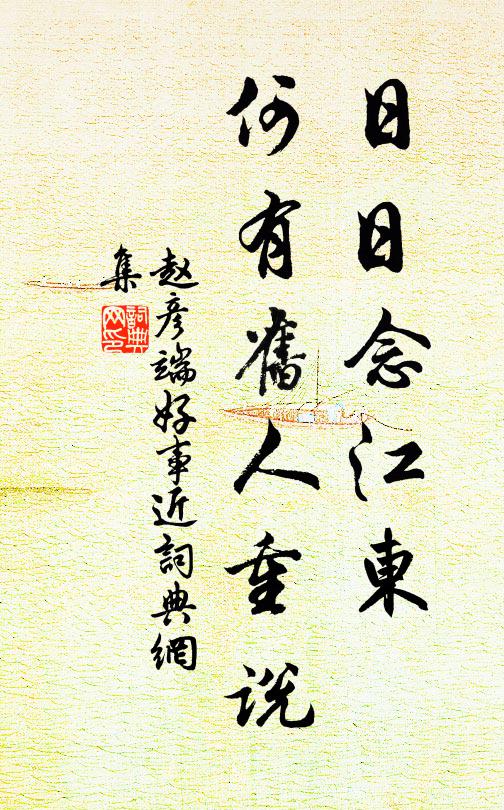 日日念江東
何有舊人重說
赵彦端好事近詞典網
集
詞典
网印